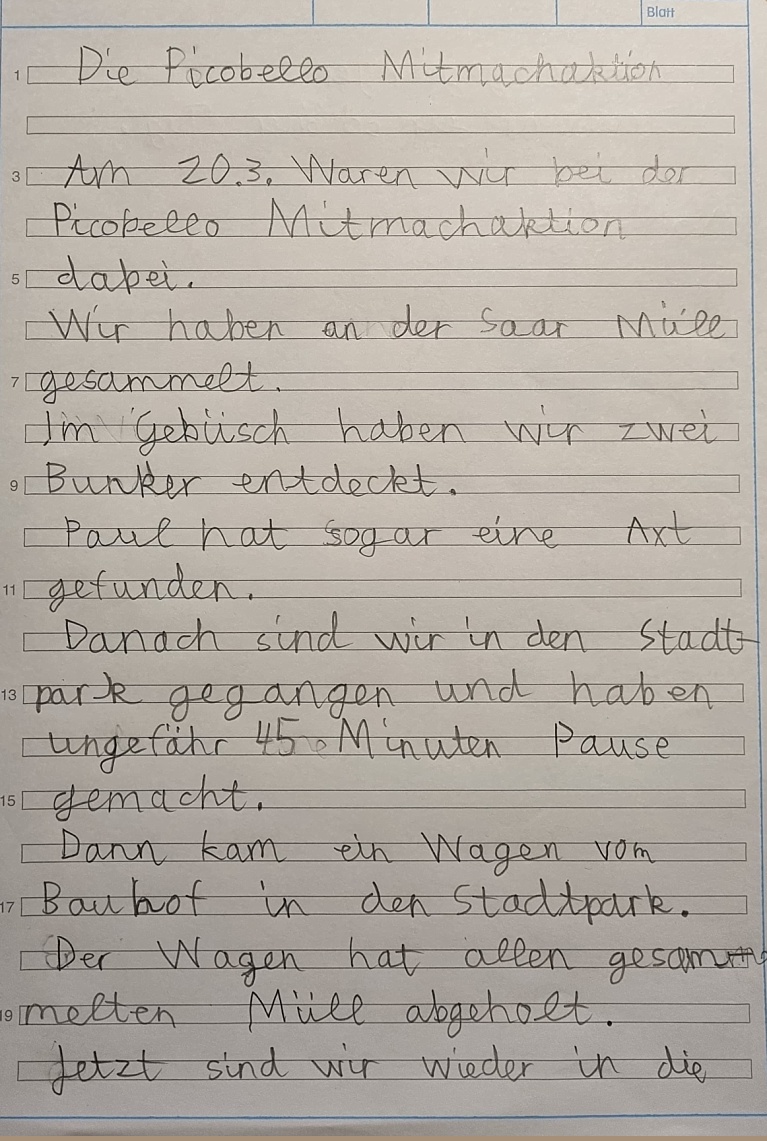 Blatt
1 Die Picobello Mitmachaktion
3 Am 20.3. Waren wir bei der
Picobello Mitmachaktion
5 dabei.
Wir haben an der Saar Müll
7 gesammelt.
Im Gebüsch haben wir zwei
9 Bunker entdeckt.
Paul hat sogar eine Axt
11 gefunden.
Danach sind wir in den Stadt-
13 park gegangen und haben
ungefähr 45 Minuten Pause
15 gemacht.
Dann kam ein Wagen vom
17 Bauhof in den Stadtpark.
Der Wagen hat allen gesam-
19 melten Müll abgeholt.
Jetzt sind wir wieder in die